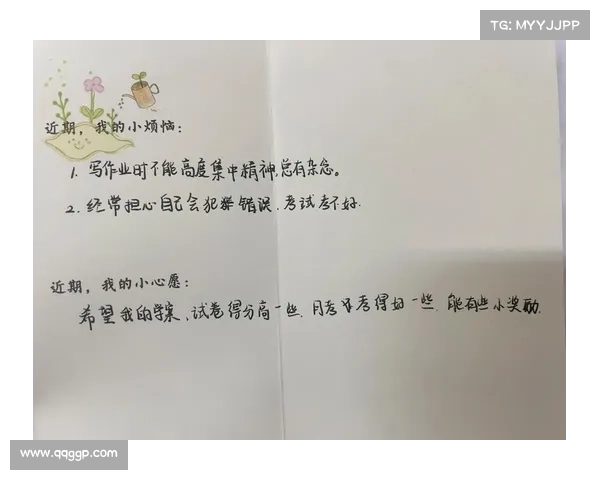 TG: MYYJJPP
近期，我的小烦恼：
1. 写作业时不能高度集中精神，总有杂念。
2. 经常担心自己会犯错误，考试考不好.
近期，我的小心愿：
希望我的学案、试卷得分高一些，月考考得好一些，能有些小奖励.
www.qqggp.com